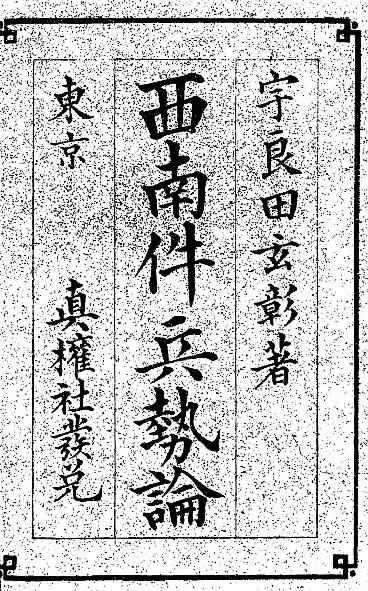 宇良田玄彰著
西南件兵勢論
東京 真権社發兌